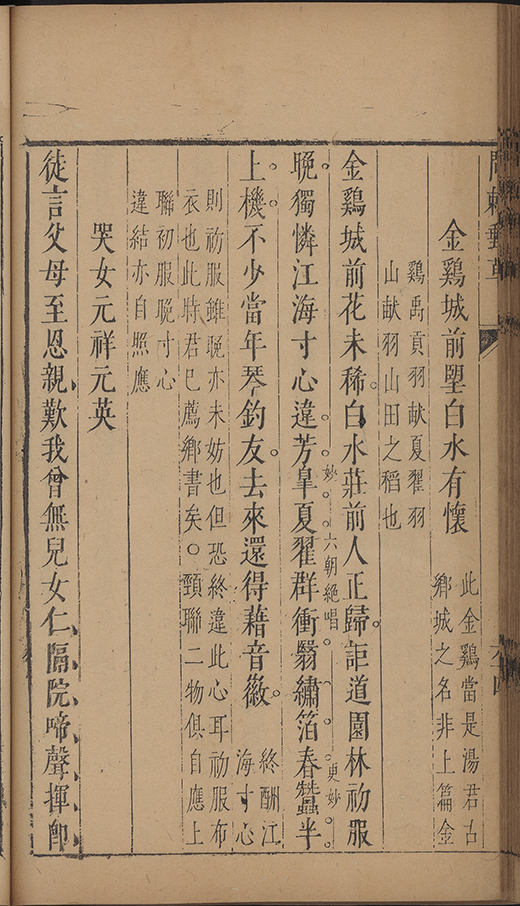 問棘郵草
金鷄城前朢白水有懷
此金鷄當是湯君古
鄉城之名非上篇金
鷄禹貢羽献夏翟羽
山献羽山田之稻也
金鷄城前花未稀白水莊前人正歸詎道園林初服
妙
六朝絕唱
更妙
晚獨憐江海寸心違芳臯夏翟群衝翳繡箔春蠶半
上機不少當年琴釣友去來還得藉音徽
終酬江
海寸心
則初服雖晚亦未妨也但恐終違此心耳初服布
衣也此時君已薦鄉書矣○頸聯二物俱自應上
聯初服晚寸心
違結亦自照應
哭女元祥元英
徒言父母至恩親歎我曾無兒女仁隔院啼聲揮卽